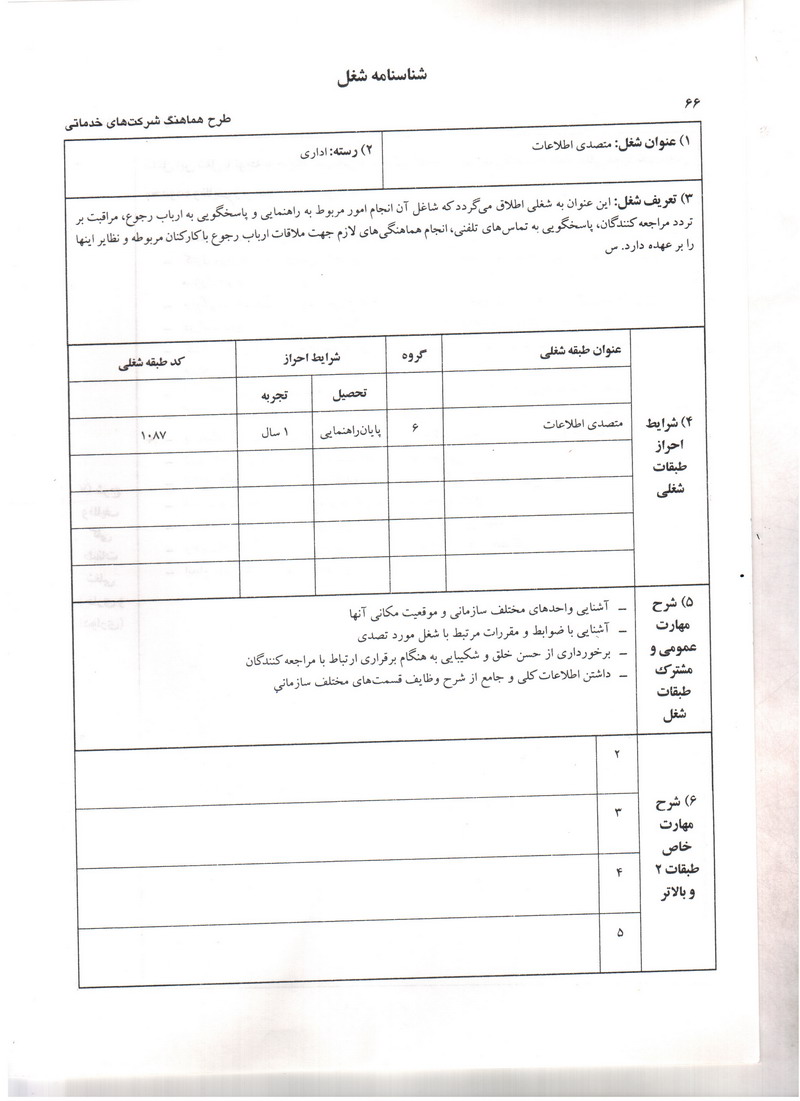 شناسنامه شغل
۶۶
طرح هماهنگ شرکت‌های خدماتی
۱) عنوان شغل: متصدی اطلاعات
۲) رسته: اداری
۳) تعریف شغل: این عنوان به شغلی اطلاق می‌گردد که شاغل آن انجام امور مربوط به راهنمایی و پاسخگویی به ارباب رجوع، مراقبت بر
تردد مراجعه‌کنندگان، پاسخگویی به تماس‌های تلفنی، انجام هماهنگی‌های لازم جهت ملاقات ارباب رجوع با کارکنان مربوطه و نظایر اینها
را بر عهده دارد. س
۴) شرایط
احراز
طبقات
شغلی
عنوان طبقه شغلی
گروه
شرایط احراز
کد طبقه شغلی
تحصیل
تجربه
متصدی اطلاعات
۶
پایان راهنمایی
۱ سال
۱۰۸۷
۵) شرح
مهارت
عمومی و
مشترک
طبقات
شغل
– آشنایی واحدهای مختلف سازمانی و موقعیت مکانی آنها
– آشنایی با ضوابط و مقررات مرتبط با شغل مورد تصدی
– برخورداری از حسن خلق و شکیبایی به هنگام برقراری ارتباط با مراجعه‌کنندگان
– داشتن اطلاعات کلی و جامع از شرح وظایف قسمت‌های مختلف سازمانی
۶) شرح
مهارت
خاص
طبقات ۲
و بالاتر
۲
۳
۴
۵